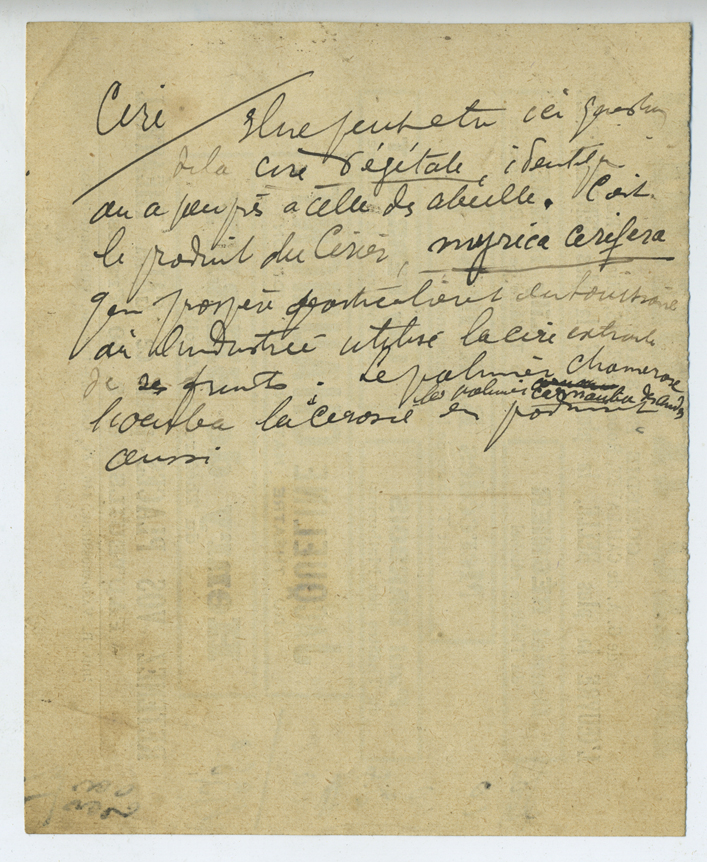 Cire / Il ne peut etre ici question
de la cire végétale, identique
ou a peu près à celle des abeille. C'est
le produit du Cirier, myrica cerifera
qui prospère particulièrement
où l'industrie utilise la cire extraite
de ses fruits. Le palmier
les palmiers carnauba des andes
la cerosie en produisent
aussi